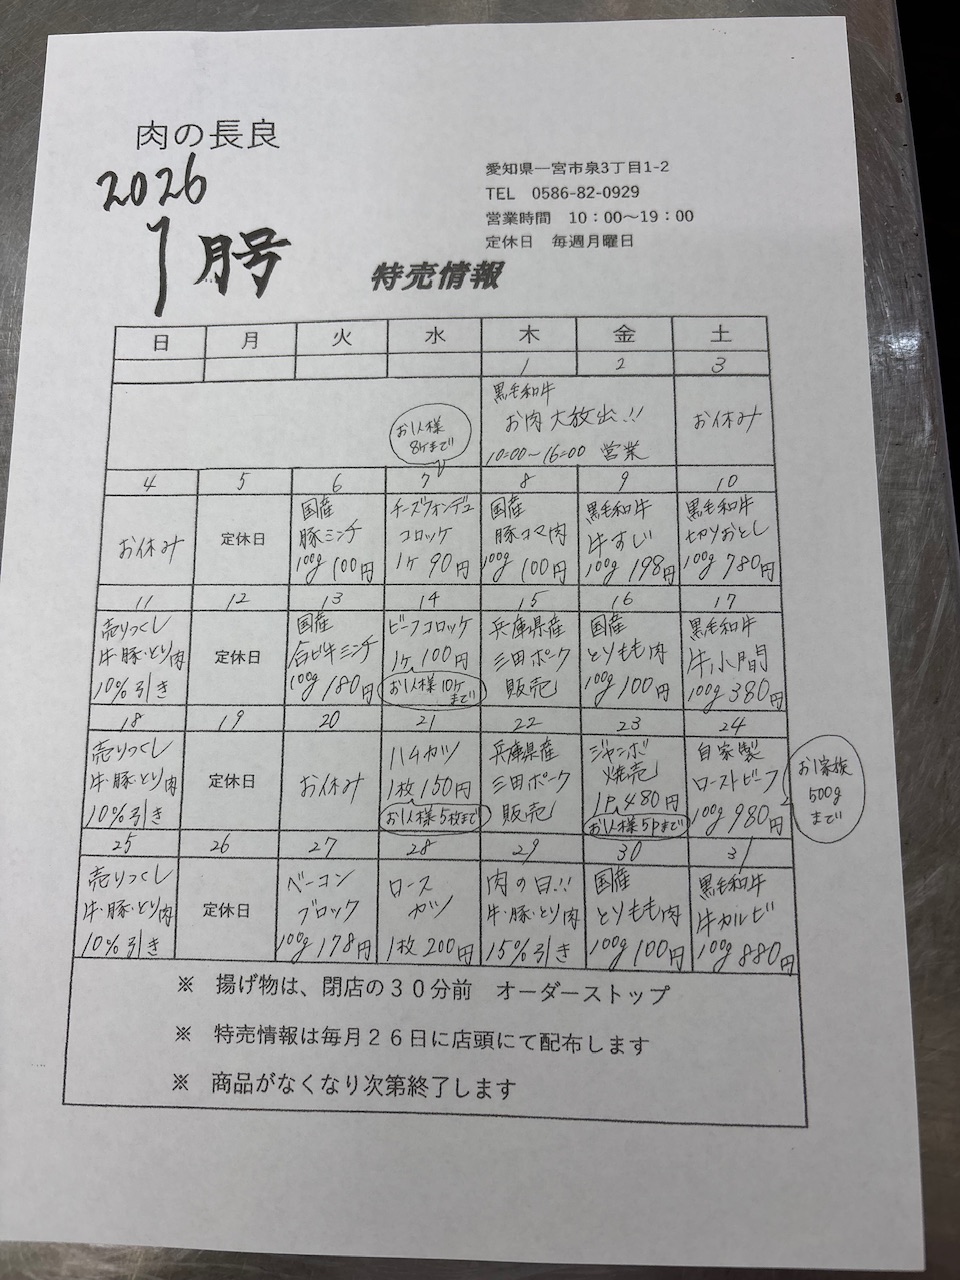 肉の長良
2026
1月号
愛知県一宮市泉3丁目1-2
TEL 0586-82-0929
営業時間 10：00～19：00
定休日 毎週月曜日
特売情報
日 月 火 水 木 金 土
1 2 3
黒毛和牛
お肉大放出!!
10:00～16:00 営業
お休み
お1人様
8ケまで
4 5 6 7 8 9 10
お休み
定休日
国産
豚ミンチ
100g 100円
チーズフォンデュ
コロッケ
1ケ 90円
国産
豚コマ肉
100g 100円
黒毛和牛
牛すじ
100g 198円
黒毛和牛
切りおとし
100g 780円
11 12 13 14 15 16 17
売りつくし
牛・豚・とり肉
10%引き
定休日
国産
合ビキミンチ
100g 180円
ビーフコロッケ
1ケ 100円
お1人様10ケ
まで
兵庫県産
三田ポーク
販売
国産
とりもも肉
100g 100円
黒毛和牛
牛小間
100g 380円
18 19 20 21 22 23 24
売りつくし
牛・豚・とり肉
10%引き
定休日
お休み
ハムカツ
1枚 150円
お1人様5枚まで
兵庫県産
三田ポーク
販売
ジャンボ
焼売
1P 480円
お1人様5Pまで
自家製
ローストビーフ
100g 980円
お1家族
500g
まで
25 26 27 28 29 30 31
売りつくし
牛・豚・とり肉
10%引き
定休日
ベーコン
ブロック
100g 178円
ロース
カツ
1枚 200円
肉の日!!
牛・豚・とり肉
15%引き
国産
とりもも肉
100g 100円
黒毛和牛
牛カルビ
100g 880円
※ 揚げ物は、閉店の３０分前 オーダーストップ
※ 特売情報は毎月２６日に店頭にて配布します
※ 商品がなくなり次第終了します